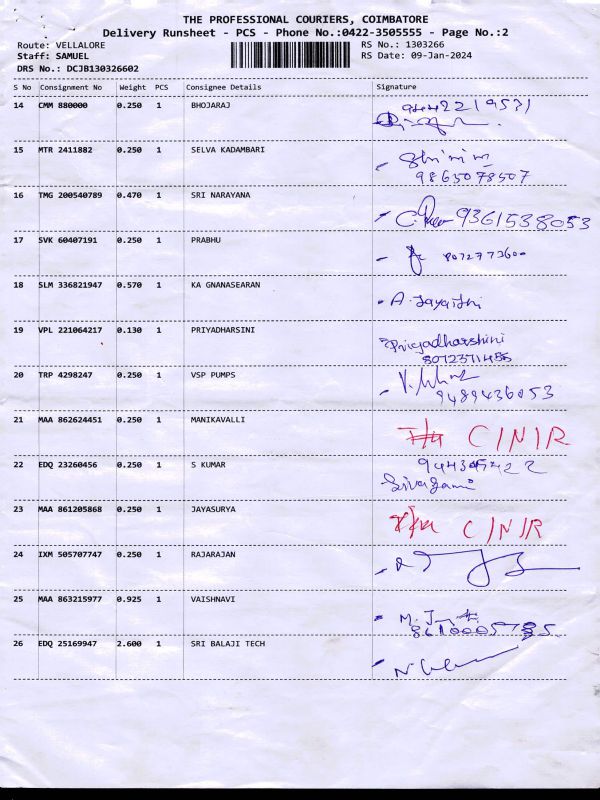 THE PROFESSIONAL COURIERS, COIMBATORE
Delivery Runsheet - PCS - Phone No.:0422-3505555 - Page No.:2
Route: VELLALORE RS No.: 1303266
Staff: SAMUEL RS Date: 09-Jan-2024
DRS No.: DCJB130326602
S No Consignment No Weight PCS Consignee Details Signature
14 CMM 880000 0.250 1 BHOJARAJ 9442219531
15 MTR 2411882 0.250 1 SELVA KADAMBARI
9865078507
16 TMG 200540789 0.470 1 SRI NARAYANA 9361538053
17 SVK 60407191 0.250 1 PRABHU 8072773600
18 SLM 336821947 0.570 1 KA GNANASEARAN A. Jayanthi
19 VPL 221064217 0.130 1 PRIYADHARSINI Priyadharshini
20 TRP 4298247 0.250 1 VSP PUMPS
9489436053
21 MAA 862624451 0.250 1 MANIKAVALLI C/N/R
22 EDQ 23260456 0.250 1 S KUMAR
Sivagami
23 MAA 861205868 0.250 1 JAYASURYA C/N/R
24 IXM 505707747 0.250 1 RAJARAJAN
25 MAA 863215977 0.925 1 VAISHNAVI
26 EDQ 25169947 2.600 1 SRI BALAJI TECH